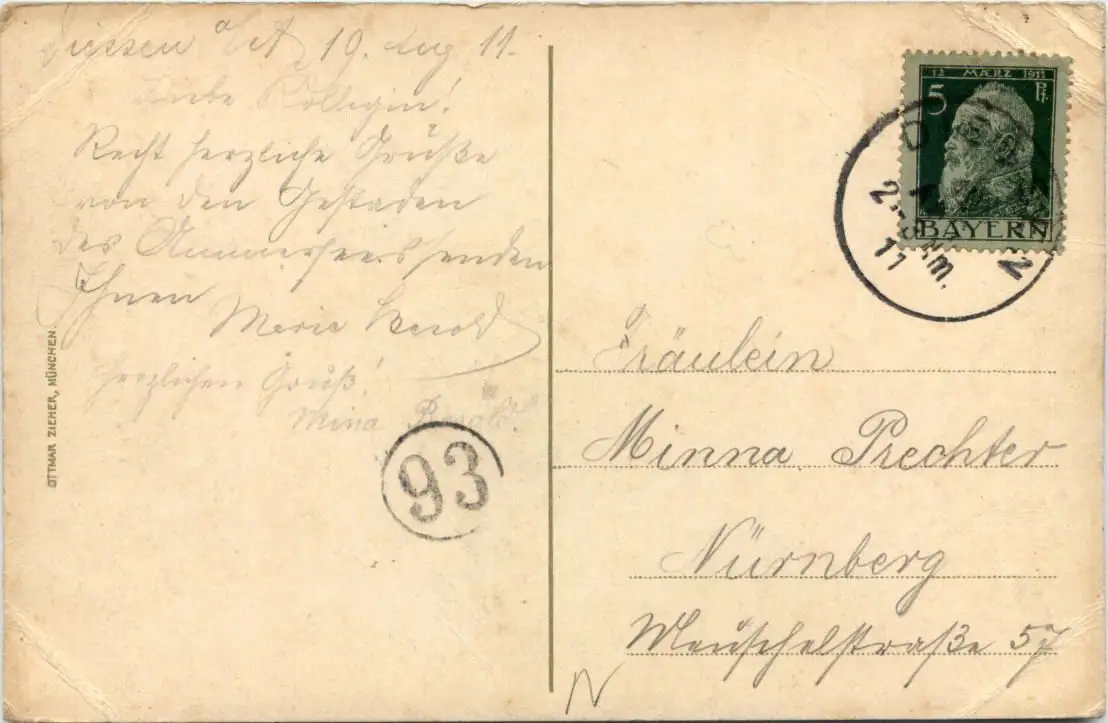 Diessen a/A 19. Aug 11.
Liebe Kollegin!
Recht herzliche Grüße
von den Gestaden
des Ammersees senden
Ihnen
Marie
herzlichen Gruß!
Mina
93
OTTMAR ZIEHER, MÜNCHEN
12 MÆRZ 1911
5 Pf.
BAYERN
2-3 Nm.
11
Fräulein
Minna Prechter
Nürnberg
Meuschelstraße 57
N